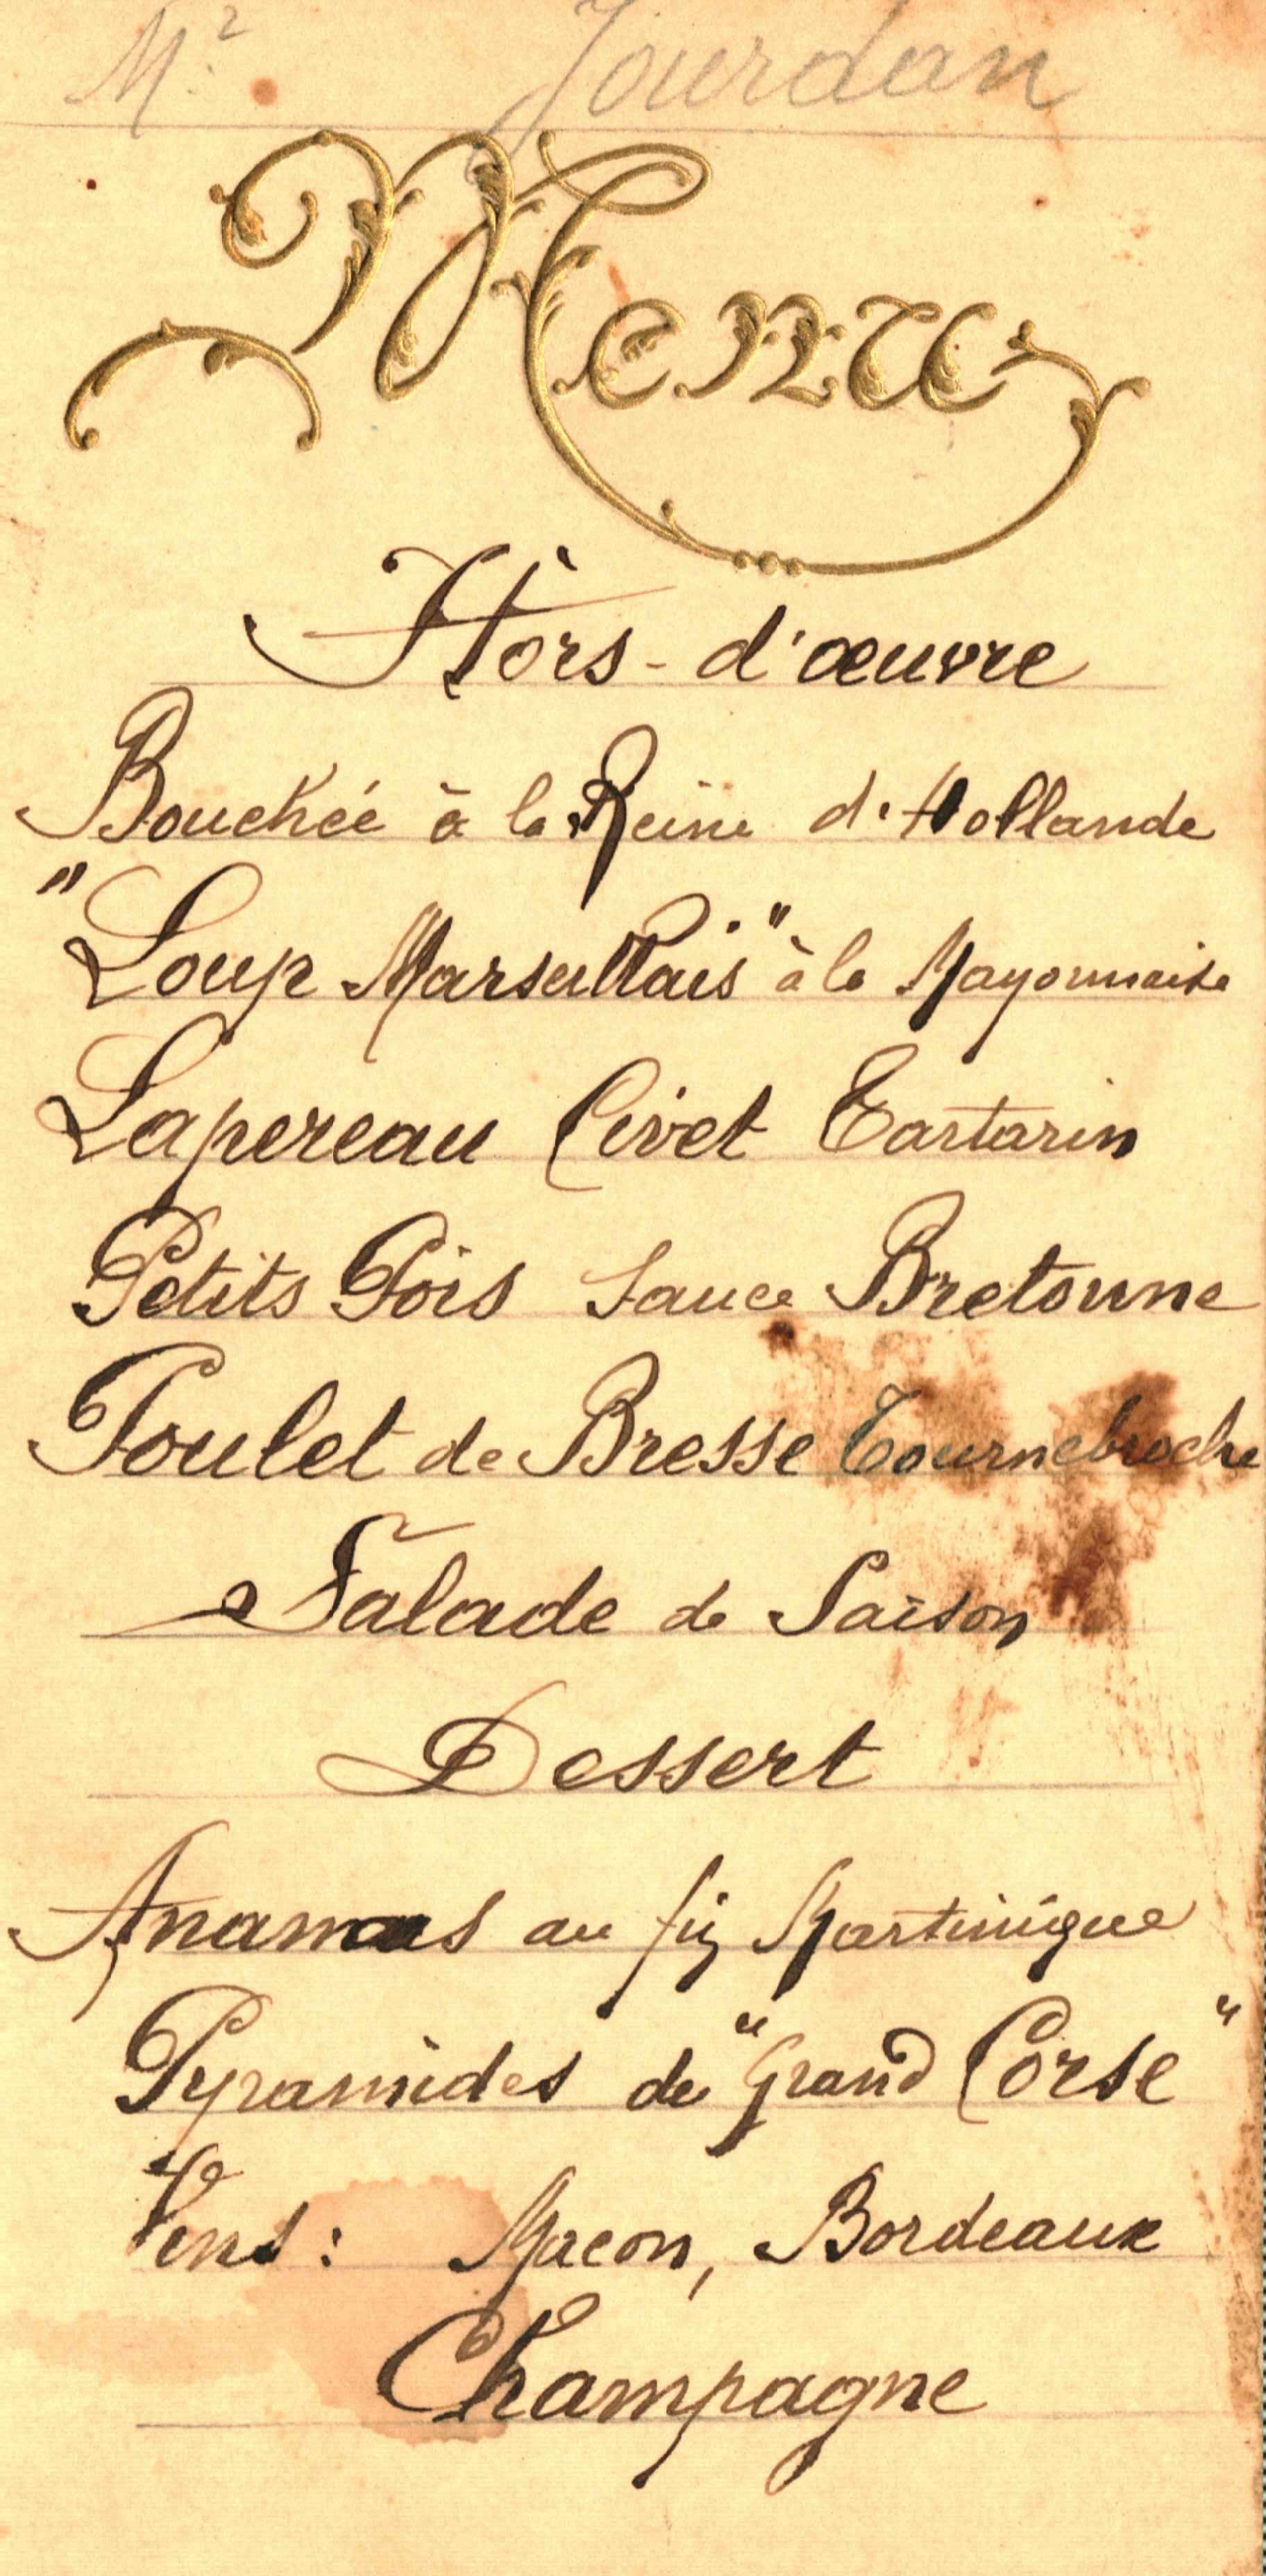 Mr Jourdan
Menu
Hors-d'œuvre
Bouchée à la Reine d'Hollande
"Loup Marseillais" à la Mayonnaise
Lapereau Civet Tartarin
Petits Pois Sauce Bretonne
Poulet de Bresse Tournebroche
Salade de Saison
Dessert
Ananas au Martinique
Pyramides de "Grand Corse"
Vins: Macon, Bordeaux
Champagne